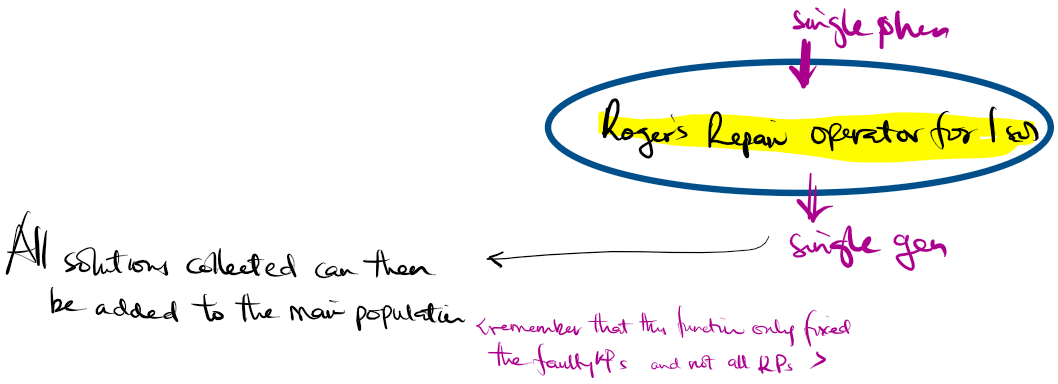 single phen
Roger's Repair operator for 1 soln
single gen
All solutions collected can then
be added to the main population
<remember that this function only fixed
the faulty RPs and not all RPs >